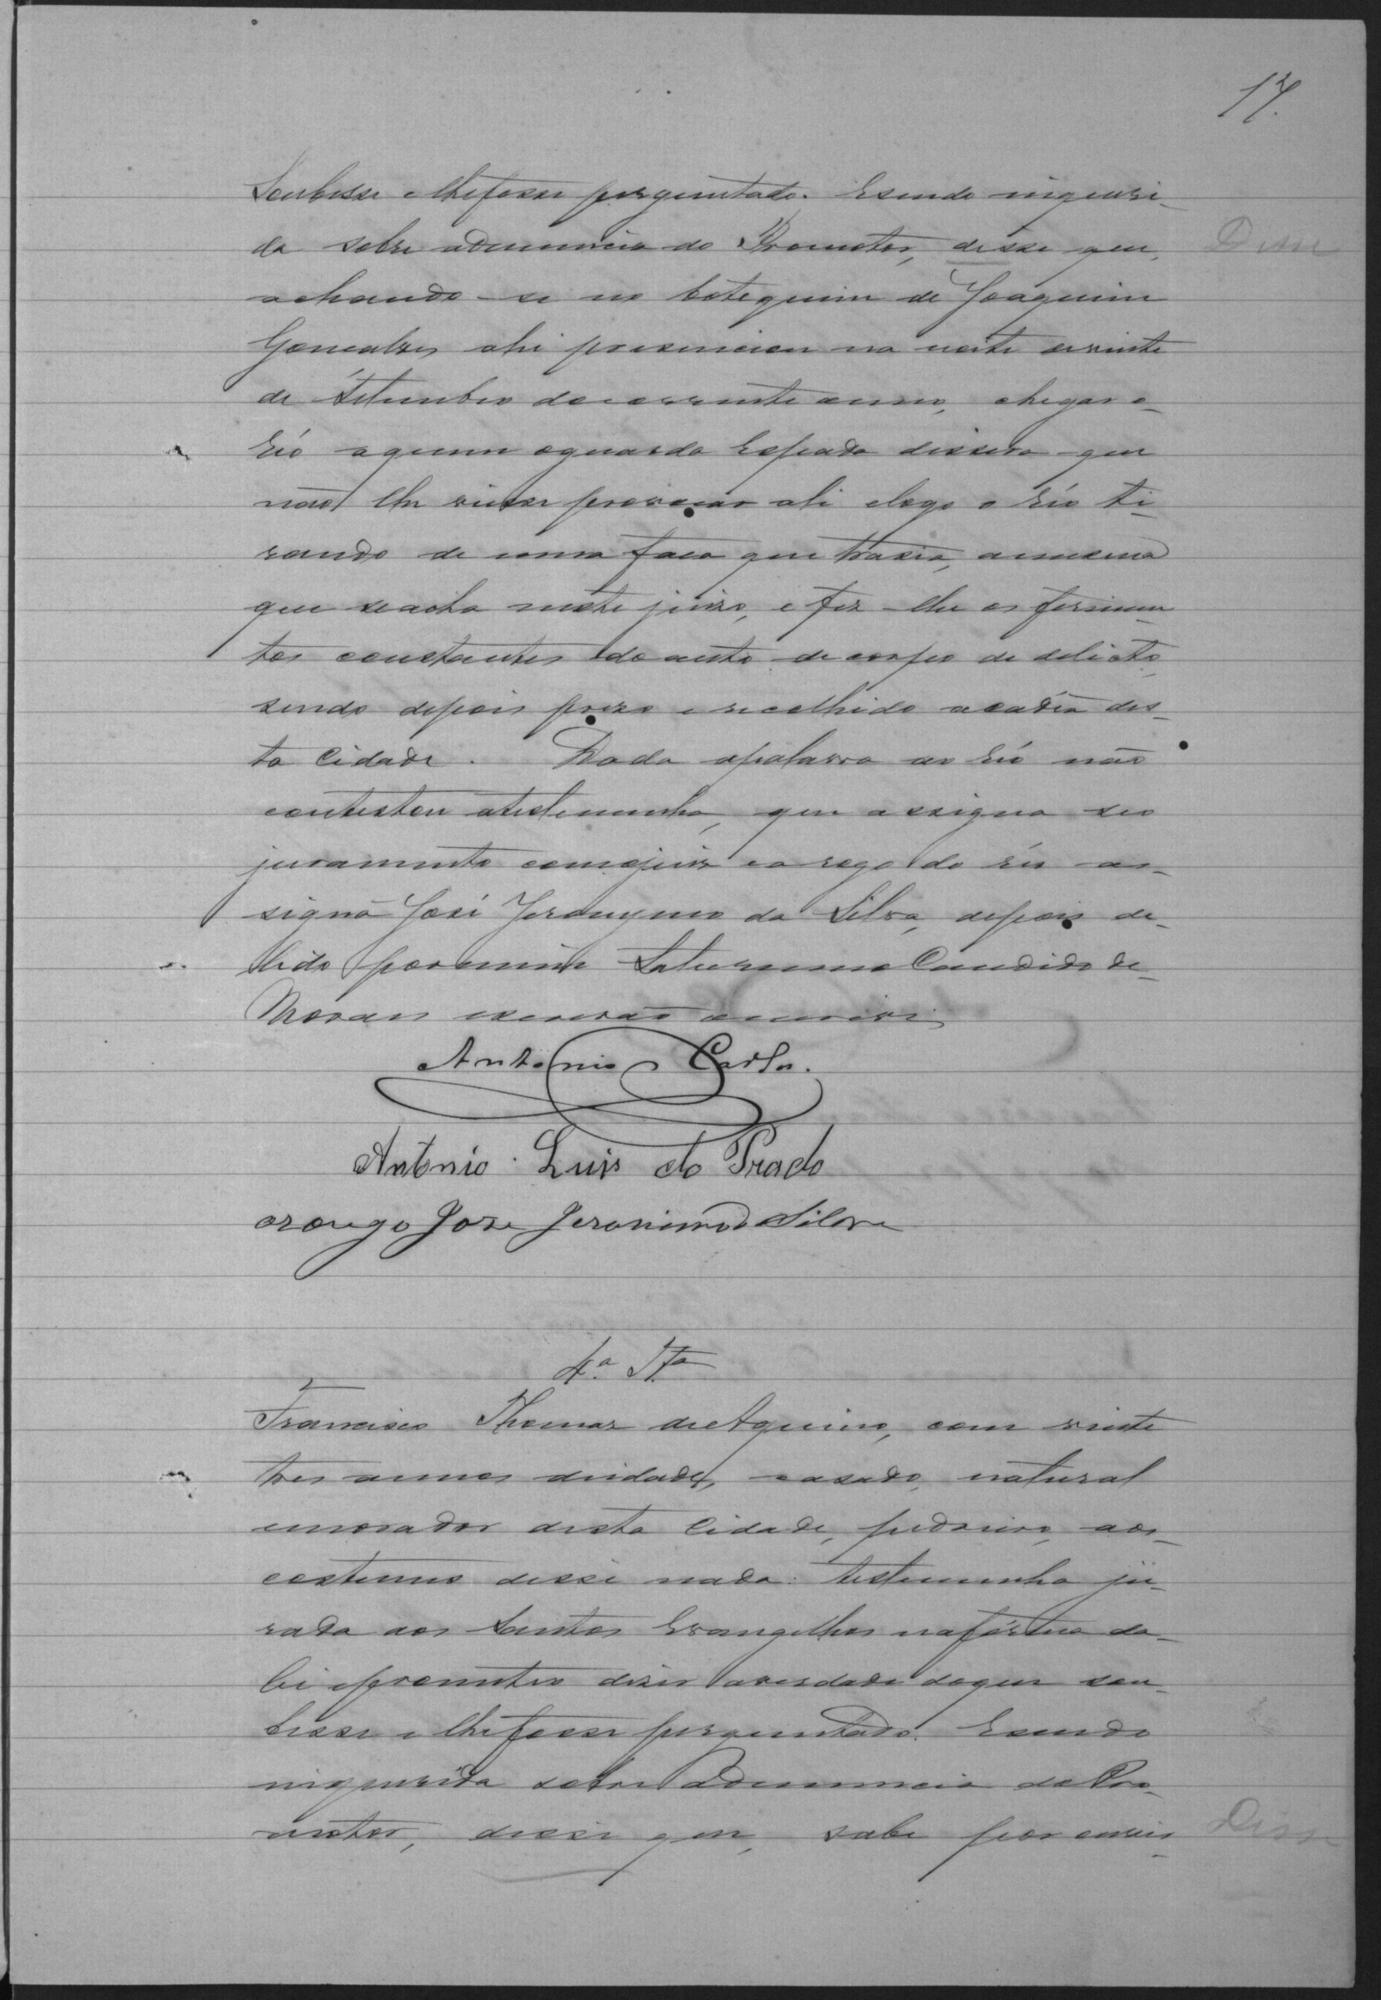 17.
Soubesse e lhe fosse perguntado. E sendo inqueri-
da sobre adenuncia do Promotor, disse que,
Disse
achando-se no botequim de Joaquim
Gonçalves ahi presenciou na noite de vinte
de Setembro do corrente anno, chegar o
réo a quem oguarda Espada dissera que
não lhe viesse provocar ahi elogo o réo ti-
rando de uma faca que trasia, a mesma
que se acha neste juizo, e fez-lhe os ferimen-
tos constantes do auto de corpo de delicto,
sendo depois prezo e recolhido a cadêa des-
ta Cidade. Dada apalavra ao réo não
contestou atestemunha, que assigna seo
juramento com ojuiz e a rogo do réo as-
signa José Jeronymo da Silva, depois de
lido por mim Saturnino Candido de
Moraes escrivão o escrevi
Antonio Carlos.
Antonio Luis do Prado
arougo Jose Jeronimo Silva
4.a Tta
Francisco Thomaz de Aquino, com vinte
tres annos deidade, casado, natural
emorador desta Cidade, pedreiro, aos
costumes disse nada: testemunha ju-
rada aos Santos Evangelhos na fórma da
lei eprometeo dizer averdade doque sou-
besse e lhe fosse perguntado. E sendo
inquerida sobre a Denuncia do Pro-
motor, disse que, sabe por ouvir
Disse